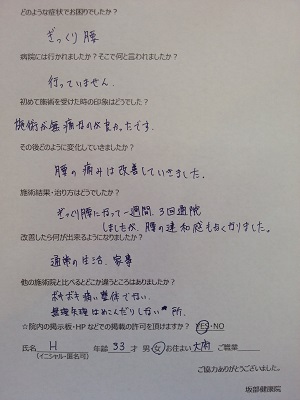 どのような症状でお困りでしたか？
ぎっくり腰
病院には行かれましたか？そこで何と言われましたか？
行っていません。
初めて施術を受けた時の印象はどうでした？
施術が無痛なのが良かったです。
その後どのように変化していきましたか？
腰の痛みは改善していきました。
施術結果・治り方はどうでしたか？
ぎっくり腰になって一週間、3回通院
しましたが、腰の違和感もなくなりました。
改善したら何が出来るようになりましたか？
通常の生活、家事
他の施術院と比べるとどこか違うところはありましたか？
ボキボキ痛い整体でない。
無理矢理はめこんだりしない所。
☆院内の掲示板・HPなどでの掲載の許可を頂けますか？ YES・NO
氏名 H 年齢 33 才 男・女 お住まい 大府 ご職業
(イニシャル・匿名可)
ご協力ありがとうございました。
坂部健康院